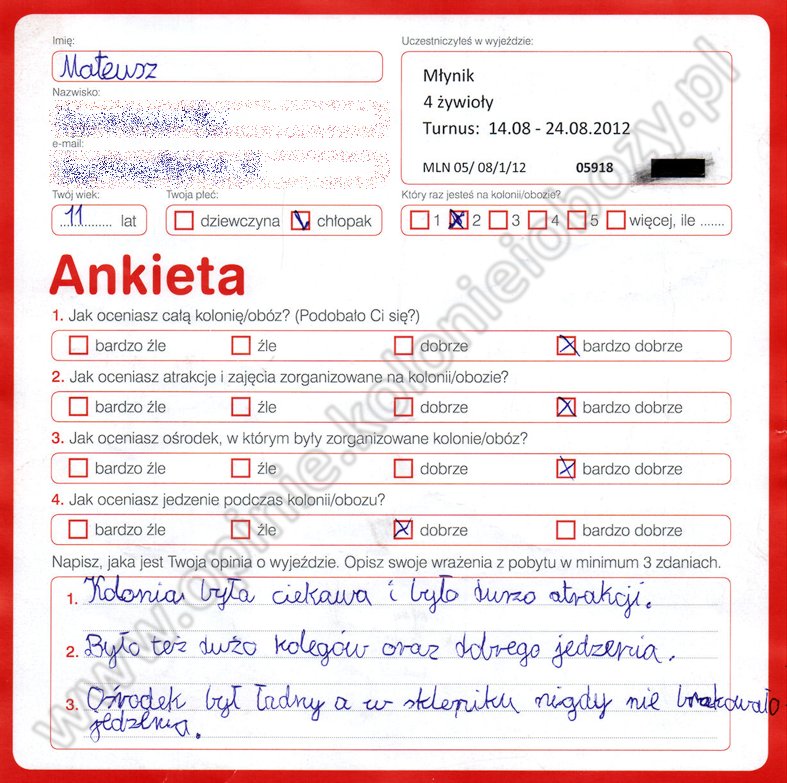 Imię:
Mateusz
Nazwisko:
e-mail:
Twój wiek:
11 lat
Twoja płeć:
dziewczyna chłopak
Uczestniczyłeś w wyjeździe:
Młynik
4 żywioły
Turnus: 14.08 - 24.08.2012
MLN 05/ 08/1/12 05918
Który raz jesteś na kolonii/obozie?
1 2 3 4 5 więcej, ile .......
Ankieta
1. Jak oceniasz całą kolonię/obóz? (Podobało Ci się?)
bardzo źle źle dobrze bardzo dobrze
2. Jak oceniasz atrakcje i zajęcia zorganizowane na kolonii/obozie?
bardzo źle źle dobrze bardzo dobrze
3. Jak oceniasz ośrodek, w którym były zorganizowane kolonie/obóz?
bardzo źle źle dobrze bardzo dobrze
4. Jak oceniasz jedzenie podczas kolonii/obozu?
bardzo źle źle dobrze bardzo dobrze
Napisz, jaka jest Twoja opinia o wyjeździe. Opisz swoje wrażenia z pobytu w minimum 3 zdaniach.
1. Kolonia była ciekawa i było dużo atrakcji.
2. Było też dużo kolegów oraz dobrego jedzenia.
3. Ośrodek był ładny a w sklepiku nigdy nie brakowało
jedzenia.
www.opinie.kolonieiobozy.pl